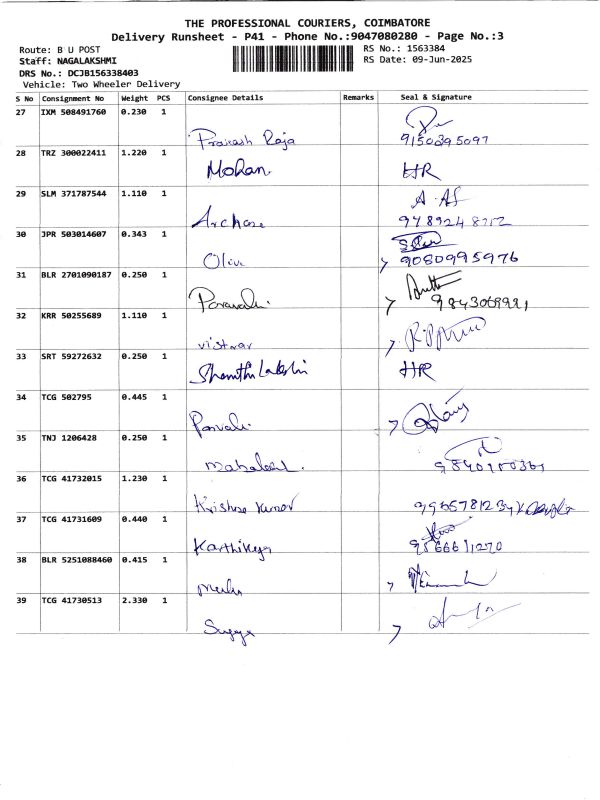 THE PROFESSIONAL COURIERS, COIMBATORE
Delivery Runsheet - P41 - Phone No.:9047080280 - Page No.:3
Route: B U POST
RS No.: 1563384
Staff: NAGALAKSHMI
RS Date: 09-Jun-2025
DRS No.: DCJB156338403
Vehicle: Two Wheeler Delivery
S No Consignment No Weight PCS Consignee Details Remarks Seal & Signature
27 IXM 508491760 0.230 1
Prakash Raja 9150395097
28 TRZ 300022411 1.220 1
Mohan HR
29 SLM 371787544 1.110 1
Archana 9789248712
30 JPR 503014607 0.343 1
Olive 9080995976
31 BLR 2701090187 0.250 1
9843069921
32 KRR 50255689 1.110 1
33 SRT 59272632 0.250 1
HR
34 TCG 502795 0.445 1
35 TNJ 1206428 0.250 1
36 TCG 41732015 1.230 1
Krishna Kumar
37 TCG 41731609 0.440 1
Karthikeya 9566611270
38 BLR 5251088460 0.415 1
39 TCG 41730513 2.330 1